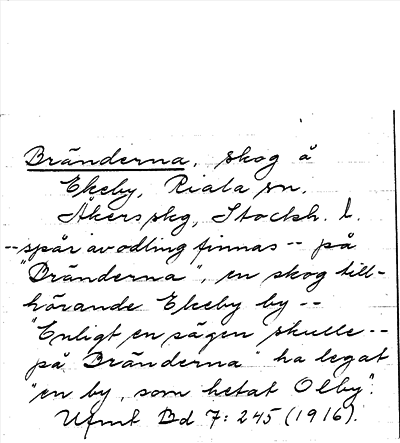 Bränderna, skog å
Ekeby, Riala sn.
Åkers skg, Stockh. l.
--spår av odling finnas -- på
"Bränderna", en skog till-
hörande Ekeby by --
"Enligt en sägen skulle --
på Bränderna" ha legat
"en by, som hetat Olby".
Ufmt Bd 7: 245 (1916).